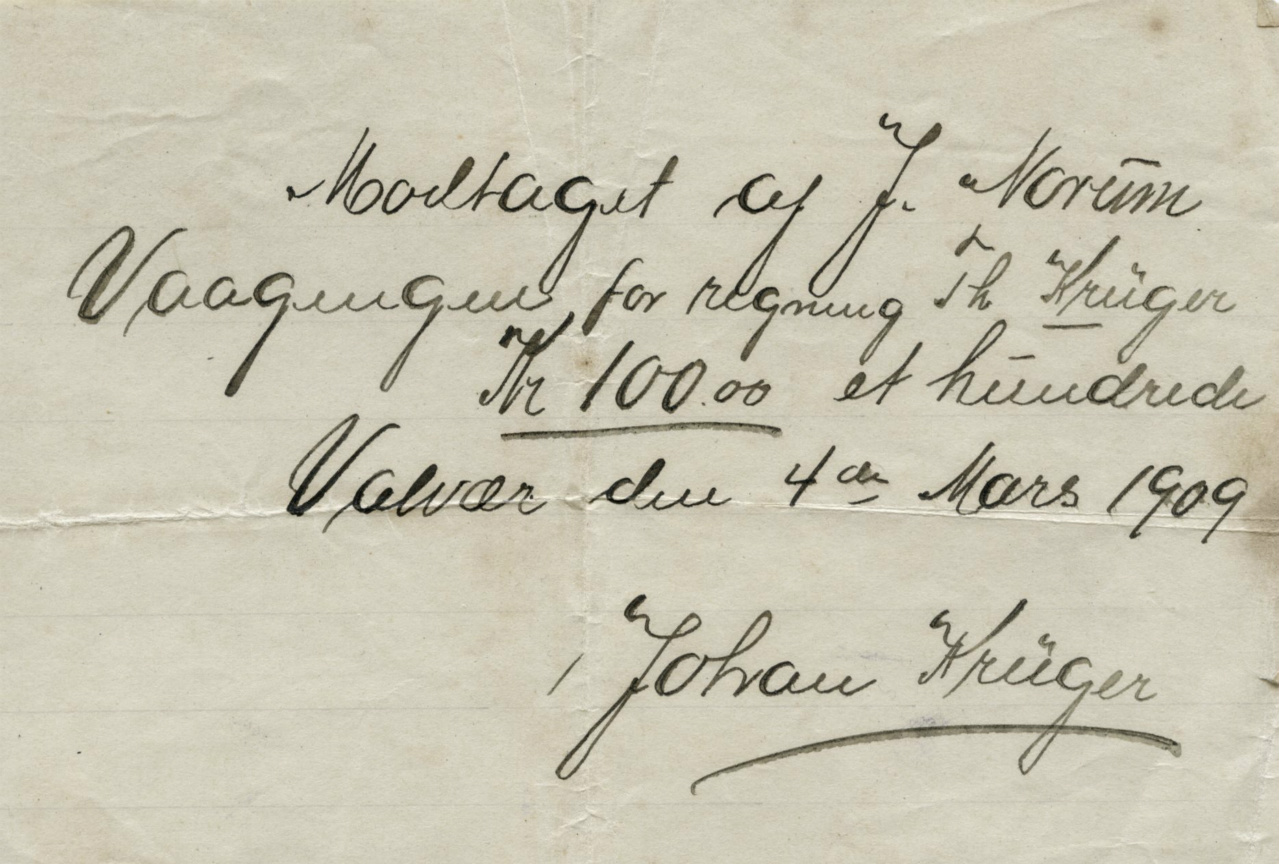 Modtaget af J. Norum
Vaagengen, for regning Th Krüger
Kr 100.00 et hundrede
Valvær den 4de Mars 1909
Johan Krüger